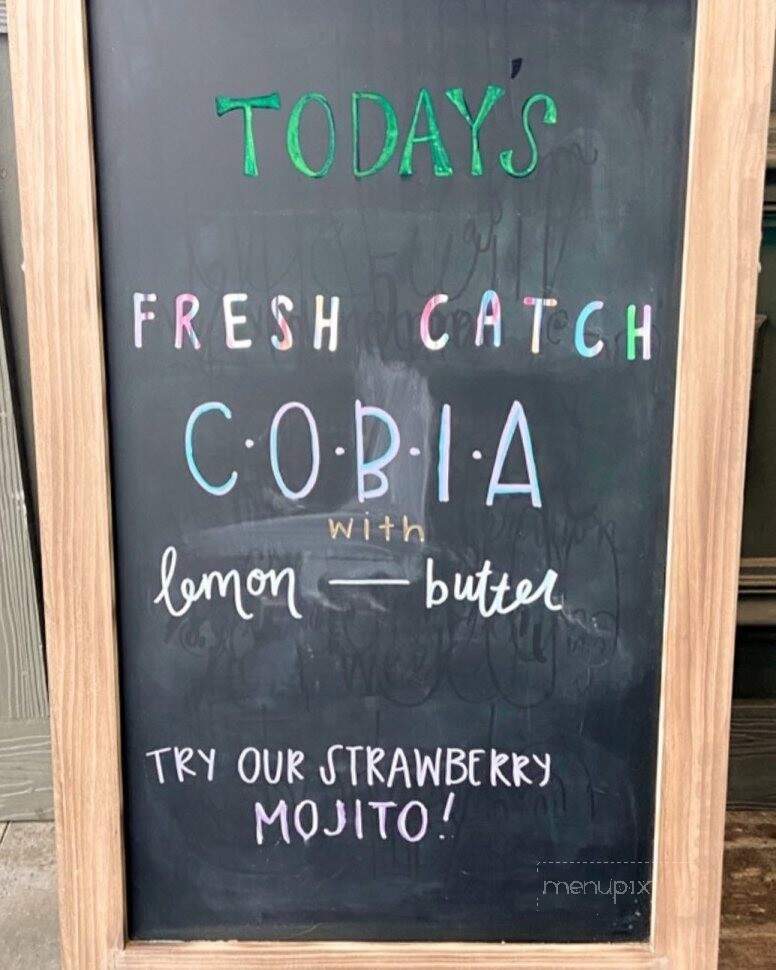 TODAY'S
FRESH CATCH
C·O·B·I·A
with
lemon — butter
TRY OUR STRAWBERRY
MOJITO!
menupix